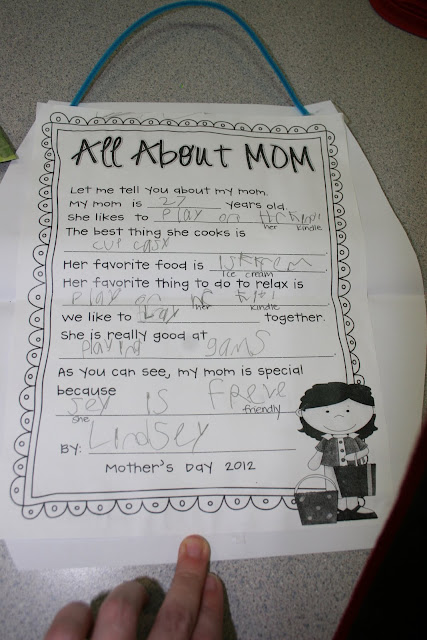 All About MOM
Let me tell you about my mom.
My mom is 27 years old.
She likes to Play on
her kindle
The best thing she cooks is
cup
Her favorite food is iskrem
ice cream
Her favorite thing to do to relax is
Play on
her kindle
We like to Play together.
She is really good at
playing gams
As you can see, my mom is special
because
sey is freve
she friendly
BY: Lindsey
Mother's Day 2012